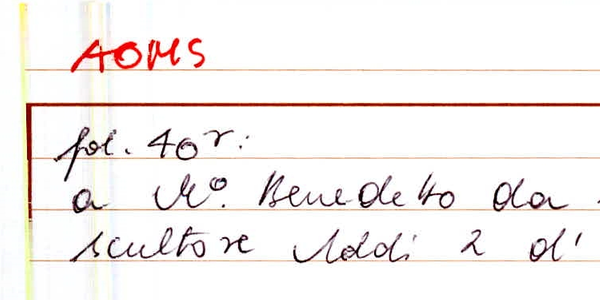 AOMS
fol. 40r:
a Mº. Benedetto da
scultore Addi 2 d'